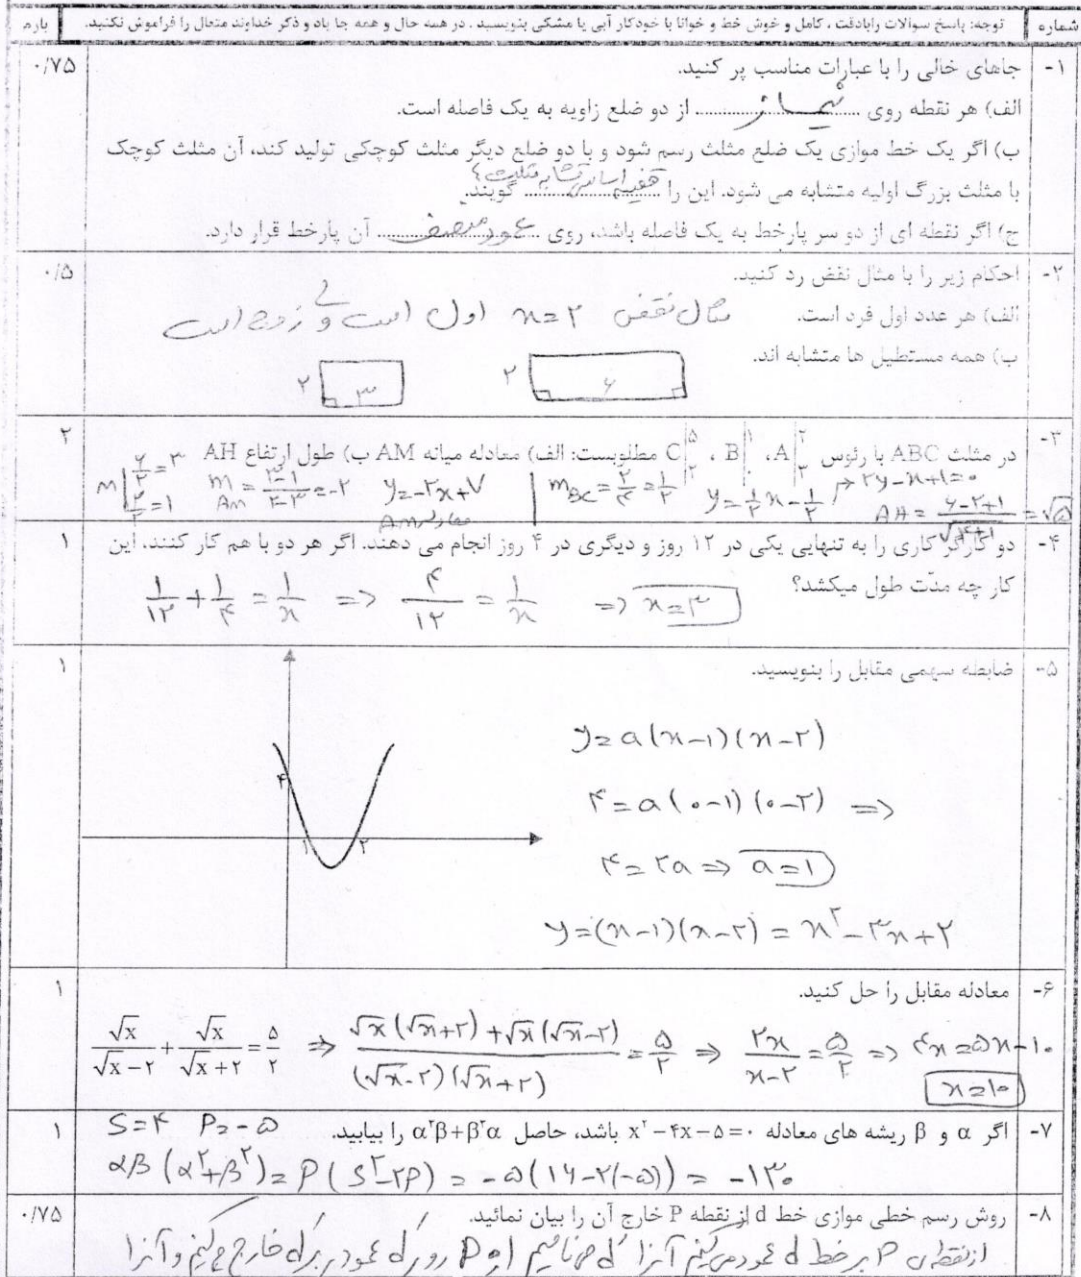 شماره توجه: پاسخ سوالات رابادقت ، کامل و خوش خط و خوانا با خودکار آبی یا مشکی بنویسید . در همه حال و همه جا یاد و ذکر خداوند متعال را فراموش نکنید. بارم
۱- جاهای خالی را با عبارات مناسب پر کنید. ۰/۷۵
الف) هر نقطه روی نیمساز از دو ضلع زاویه به یک فاصله است.
ب) اگر یک خط موازی یک ضلع مثلث رسم شود و با دو ضلع دیگر مثلث کوچکی تولید کند، آن مثلث کوچک
با مثلث بزرگ اولیه متشابه می شود. این را قضیه اساسی تشابه مثلث ها گویند.
ج) اگر نقطه ای از دو سر پارخط به یک فاصله باشد، روی عمود منصف آن پارخط قرار دارد.
۲- احکام زیر را با مثال نقض رد کنید. ۰/۵
الف) هر عدد اول فرد است. مثال نقض n=۲ اول است ولی زوج است
ب) همه مستطیل ها متشابه اند.
۲ ۶ ۲ ۳
۳- در مثلث ABC با رئوس A|۲ ۳ ، B|۱ ۰ ، C|۵ ۲ مطلوبست: الف) معادله میانه AM ب) طول ارتفاع AH ۲
M|۶/۲=۳ ۲/۲=۱ m AM = ۳-۱/۲-۳ = -۲ y=-۲x+۷ معادله AM m BC = ۲/۴ = ۱/۲ y=۱/۲x-۱/۲ → ۲y-x+۱=۰ AH = ۶-۲+۱/√۴+۱ = √۵
۴- دو کارگر کاری را به تنهایی یکی در ۱۲ روز و دیگری در ۴ روز انجام می دهند. اگر هر دو با هم کار کنند، این ۱
کار چه مدّت طول میکشد؟
۱/۱۲ + ۱/۴ = ۱/x => ۴/۱۲ = ۱/x => x=۳
۵- ضابطه سهمی مقابل را بنویسید. ۱
۴ ۱ ۲
y=a(x-۱)(x-۲)
۴=a(۰-۱)(۰-۲) =>
۴=۲a => a=۱
y=(x-۱)(x-۲) = x²-۳x+۲
۶- معادله مقابل را حل کنید. ۱
√x/√x-۲ + √x/√x+۲ = ۵/۲ => √x(√x+۲)+√x(√x-۲)/(√x-۲)(√x+۲) = ۵/۲ => ۲x/x-۲ = ۵/۲ => ۴x=۵x-۱۰
x=۱۰
۷- اگر α و β ریشه های معادله x²-۴x-۵=۰ باشد، حاصل α³β+β³α را بیابید. S=۴ P=-۵ ۱
αβ(α²+β²)=P(S²-۲P) = -۵(۱۶-۲(-۵)) = -۱۳۰
۸- روش رسم خطی موازی خط d از نقطه P خارج آن را بیان نمائید. ۰/۷۵
ازنقطه ی P بر خط d عمود می کنیم آنرا d' می نامیم از P روی d' عمود بر d' خارج می کنیم و آنرا